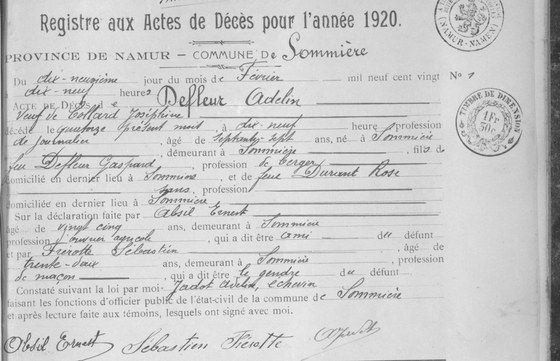 Registre aux Actes de Décès pour l'année 1920.
PROVINCE DE NAMUR — COMMUNE DE Sommière
Du dix-neuvième jour du mois de Février mil neuf cent vingt N° 1
dix-neuf heures
ACTE DE DÉCÈS de Defleur Adelin
veuf de Collard Joséphine
décédé le quatorze présent mois à dix-neuf heure profession
de journalier, âgé de septante-sept ans, né à Sommière
, demeurant à Sommière, fils de
feu Defleur Gaspard, profession de berger
domicilié en dernier lieu à Sommière, et de feue Durvent Rose
sans, profession
domiciliée en dernier lieu à Sommière
Sur la déclaration faite par Absil Ernest
âgé de vingt cinq ans, demeurant à Sommière
profession d'ouvrier agricole, qui a dit être ami du défunt
et par Fiérotte Sébastien, âgé de
trente-deux ans, demeurant à Sommière, profession
de maçon, qui a dit être le gendre du défunt.
Constaté suivant la loi par moi, Jadot Adelin, échevin
faisant les fonctions d'officier public de l'état-civil de la commune de Sommière
et après lecture faite aux témoins, lesquels ont signé avec moi.
Absil Ernest Sébastien Fiérotte
(NAMUR-NAMEN)
TIMBRE DE DIMENSION
1 Fr
50c